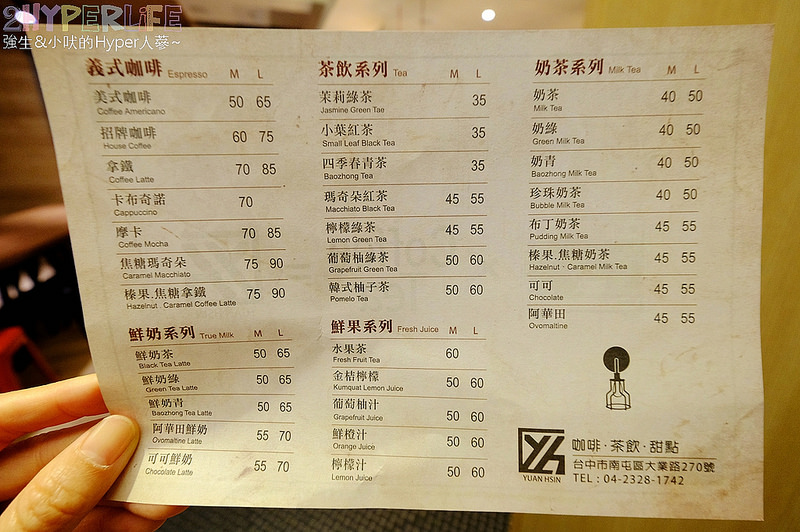 2HYPERLIFE
強生&小吠的Hyper人蔘~
義式咖啡 Espresso M L
美式咖啡 50 65
Coffee Americano
招牌咖啡 60 75
House Coffee
拿鐵 70 85
Coffee Latte
卡布奇諾 70
Cappuccino
摩卡 70 85
Coffee Mocha
焦糖瑪奇朵 75 90
Caramel Macchiato
榛果.焦糖拿鐵 75 90
Hazelnut . Caramel Coffee Latte
鮮奶系列 True Milk M L
鮮奶茶 50 65
Black Tea Latte
鮮奶綠 50 65
Green Tea Latte
鮮奶青 50 65
Baozhong Tea Latte
阿華田鮮奶 55 70
Ovomaltine Latte
可可鮮奶 55 70
Chocolate Latte
茶飲系列 Tea M L
茉莉綠茶 35
Jasmine Green Tae
小葉紅茶 35
Small Leaf Black Tea
四季春青茶 35
Baozhong Tea
瑪奇朵紅茶 45 55
Macchiato Black Tea
檸檬綠茶 45 55
Lemon Green Tea
葡萄柚綠茶 50 60
Grapefruit Green Tea
韓式柚子茶 50 60
Pomelo Tea
鮮果系列 Fresh Juice M L
水果茶 60
Fresh Fruit Tea
金桔檸檬 50 60
Kumquat Lemon Juice
葡萄柚汁 50 60
Grapefruit Juice
鮮橙汁 50 60
Orange Juice
檸檬汁 50 60
Lemon Juice
奶茶系列 Milk Tea M L
奶茶 40 50
Milk Tea
奶綠 40 50
Green Milk Tea
奶青 40 50
Baozhong Milk Tea
珍珠奶茶 40 50
Bubble Milk Tea
布丁奶茶 45 55
Pudding Milk Tea
榛果.焦糖奶茶 45 55
Hazelnut . Caramel Milk Tea
可可 45 55
Chocolate
阿華田 45 55
Ovomaltine
YUAN HSIN
咖啡·茶飲·甜點
台中市南屯區大業路270號
TEL : 04-2328-1742